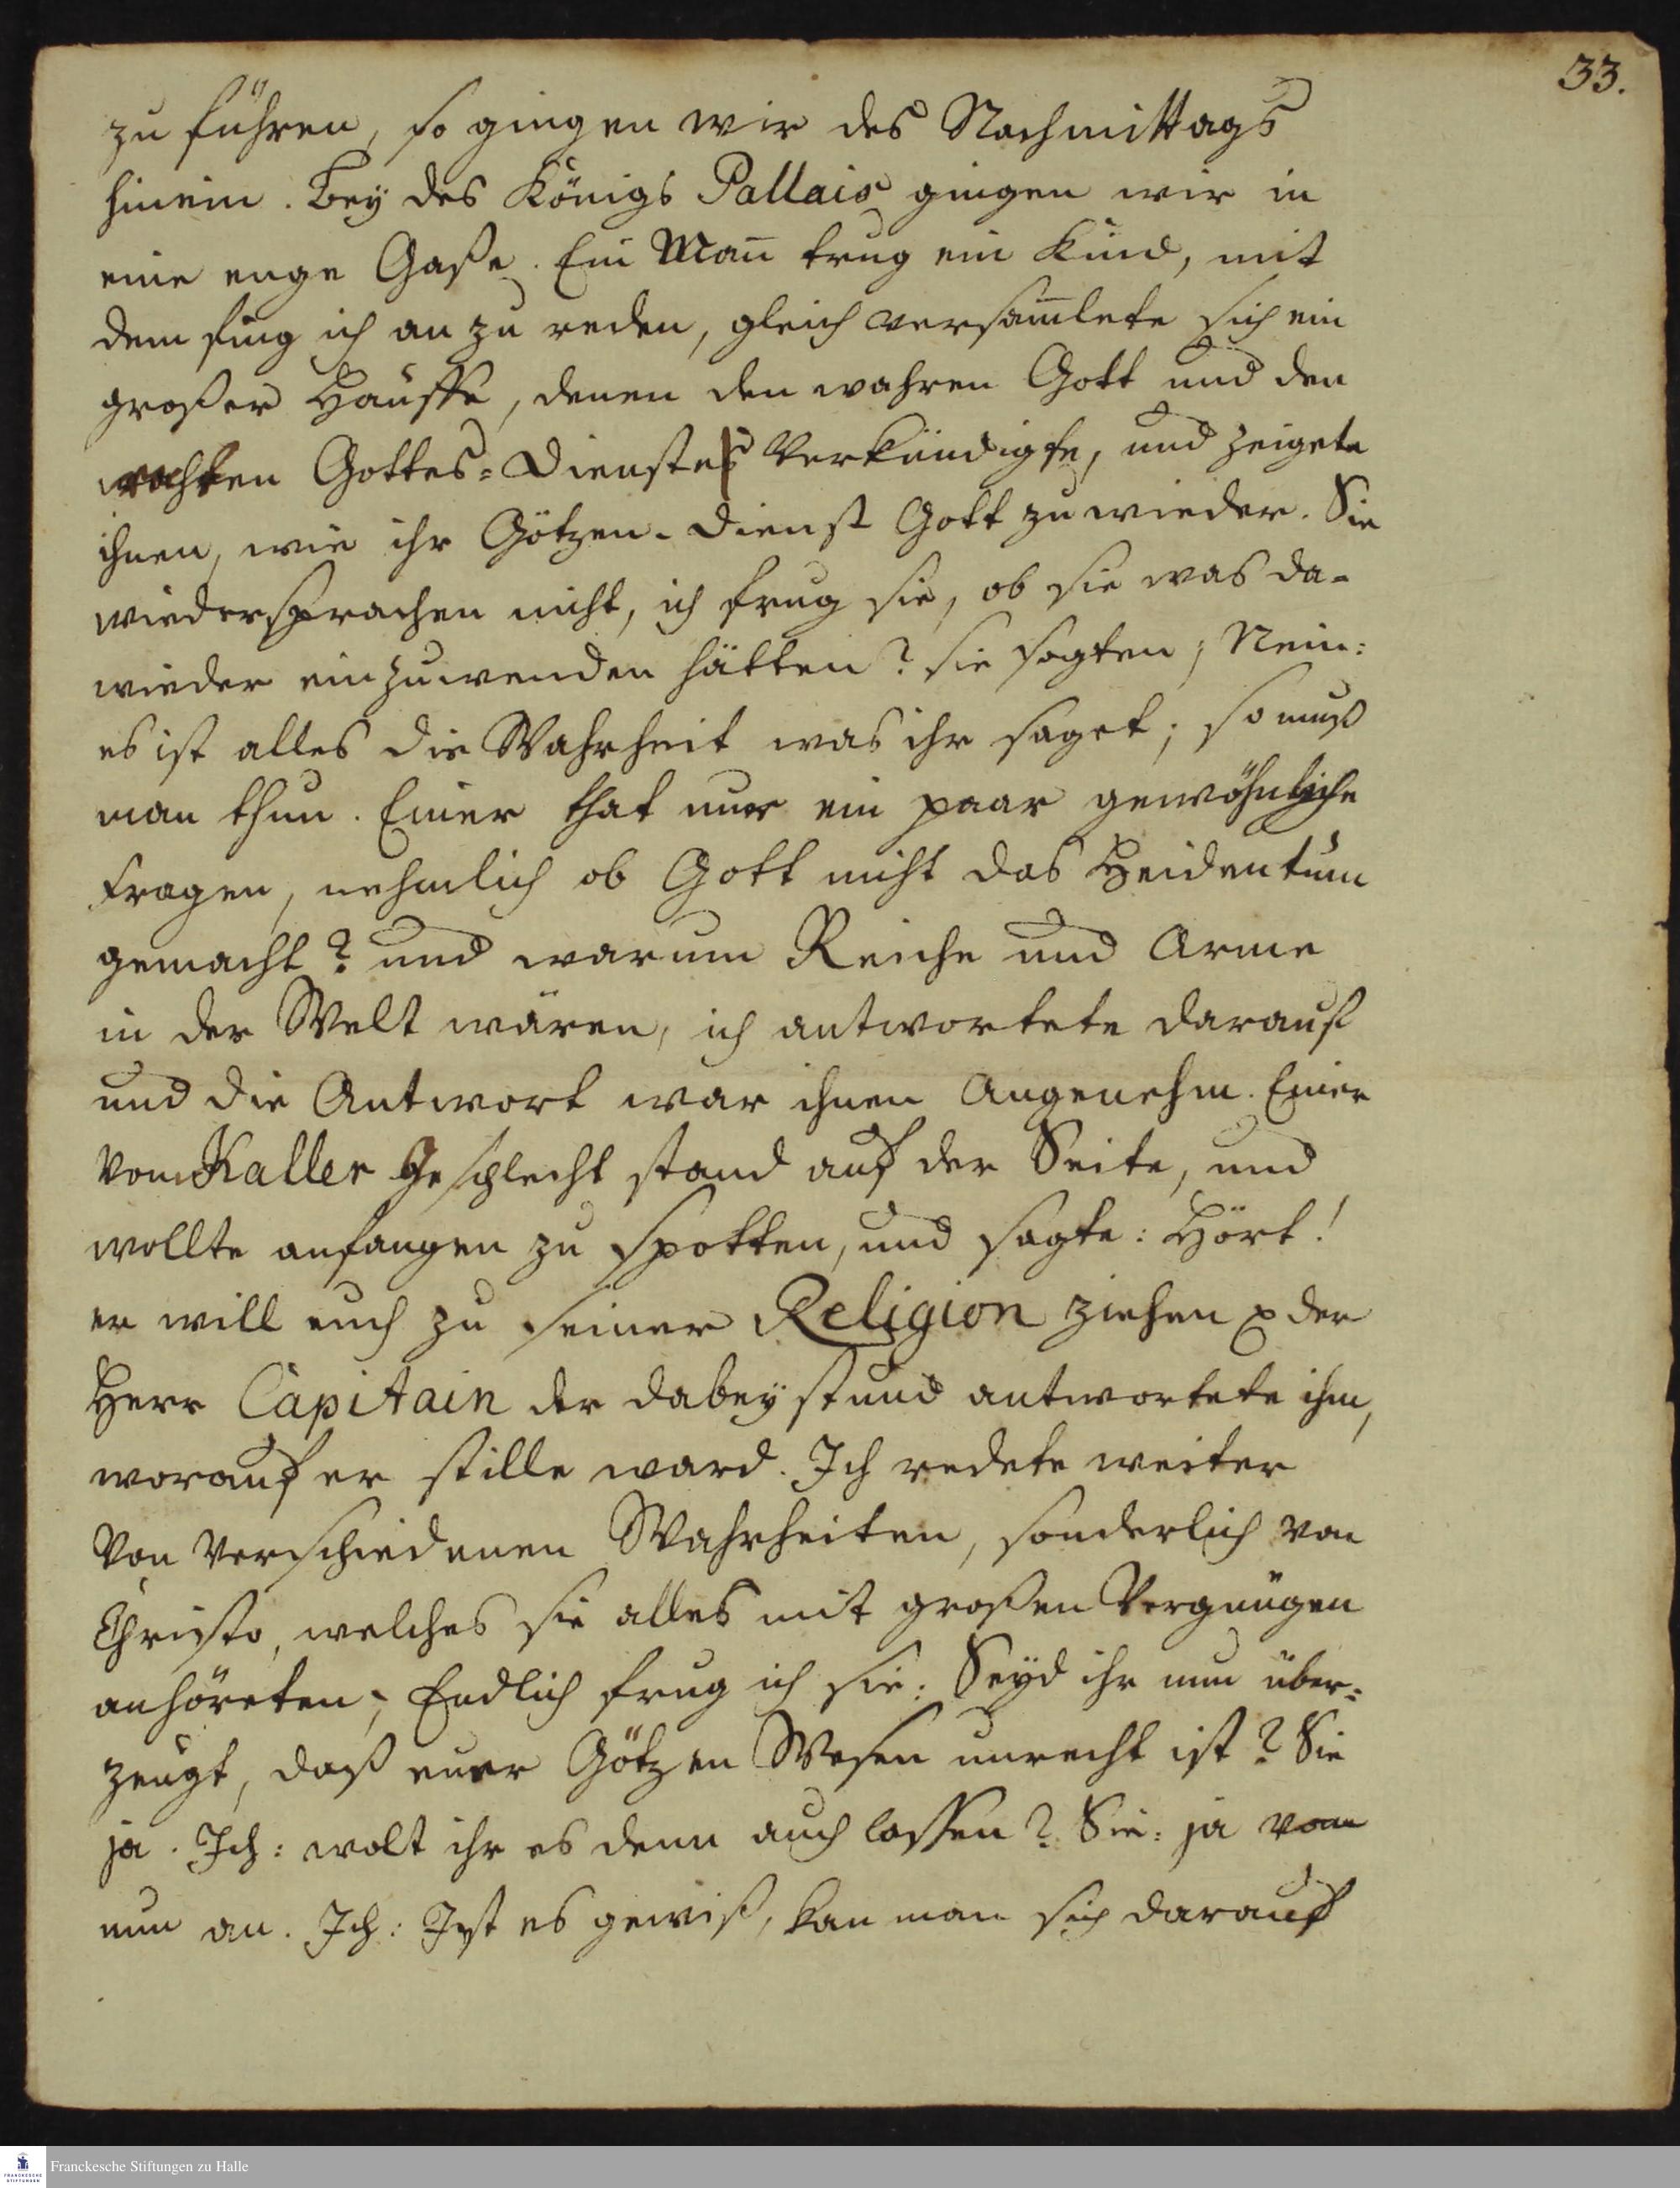 33.
zu führen, so gingen wir des Nachmittags
hinein. Bey des Königs Pallais gingen wir in
eine enge Gaße. Ein Mañ trug ein Kind, mit
dem fing ich an zu reden, gleich versam̄lete sich ein
großer Hauffe, denen den wahren Gott und den
rechten Gottes-Dienstes Verkündigte, und zeigete
ihnen, wie ihr Götzen-Dienst Gott zu wieder. Sie
wiedersprachen nicht, ich frug sie, ob sie was da-
wieder einzuwenden hätten? sie sagten; Nein:
es ist alles die Wahrheit was ihr saget; so muß
man thun. Einer that nur ein paar gewöhnliche
Fragen, nehmlich ob Gott nicht das Heidentum
gemacht? und warum Reiche und Arme
in der Welt wären, ich antwortete darauf
und die Antwort war ihnen Angenehm. Einer
Vom Kaller Geschlecht stand auf der Seite, und
wollte anfangen zu spotten, und sagte: Hört!
er will euch zu seiner Religion ziehen der
Herr Capitain der dabey stund antwortete ihm,
worauf er stille ward. Ich redete weiter
Von Verschiedenen Wahrheiten, sonderlich von
Christo, welches sie alles mit großen Vergnügen
anhöreten; Endlich frug ich sie: Seyd ihr nun über-
zeugt, daß euer Götzen Wesen unrecht ist? Sie
ja. Ich: wolt ihr es denn auch lassen? Sie: ja von
nun an. Ich: Ist es gewiß, kan man sich darauf
Franckesche Stiftungen zu Halle